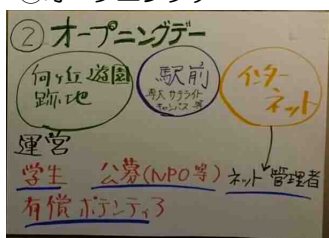 ②オープニングデー
向ヶ丘遊園
跡地
駅前
専大サテライト
キャンパス 等
インター
ネット
運営
学生 公募(NPO等) ネット管理者
有償ボランティア